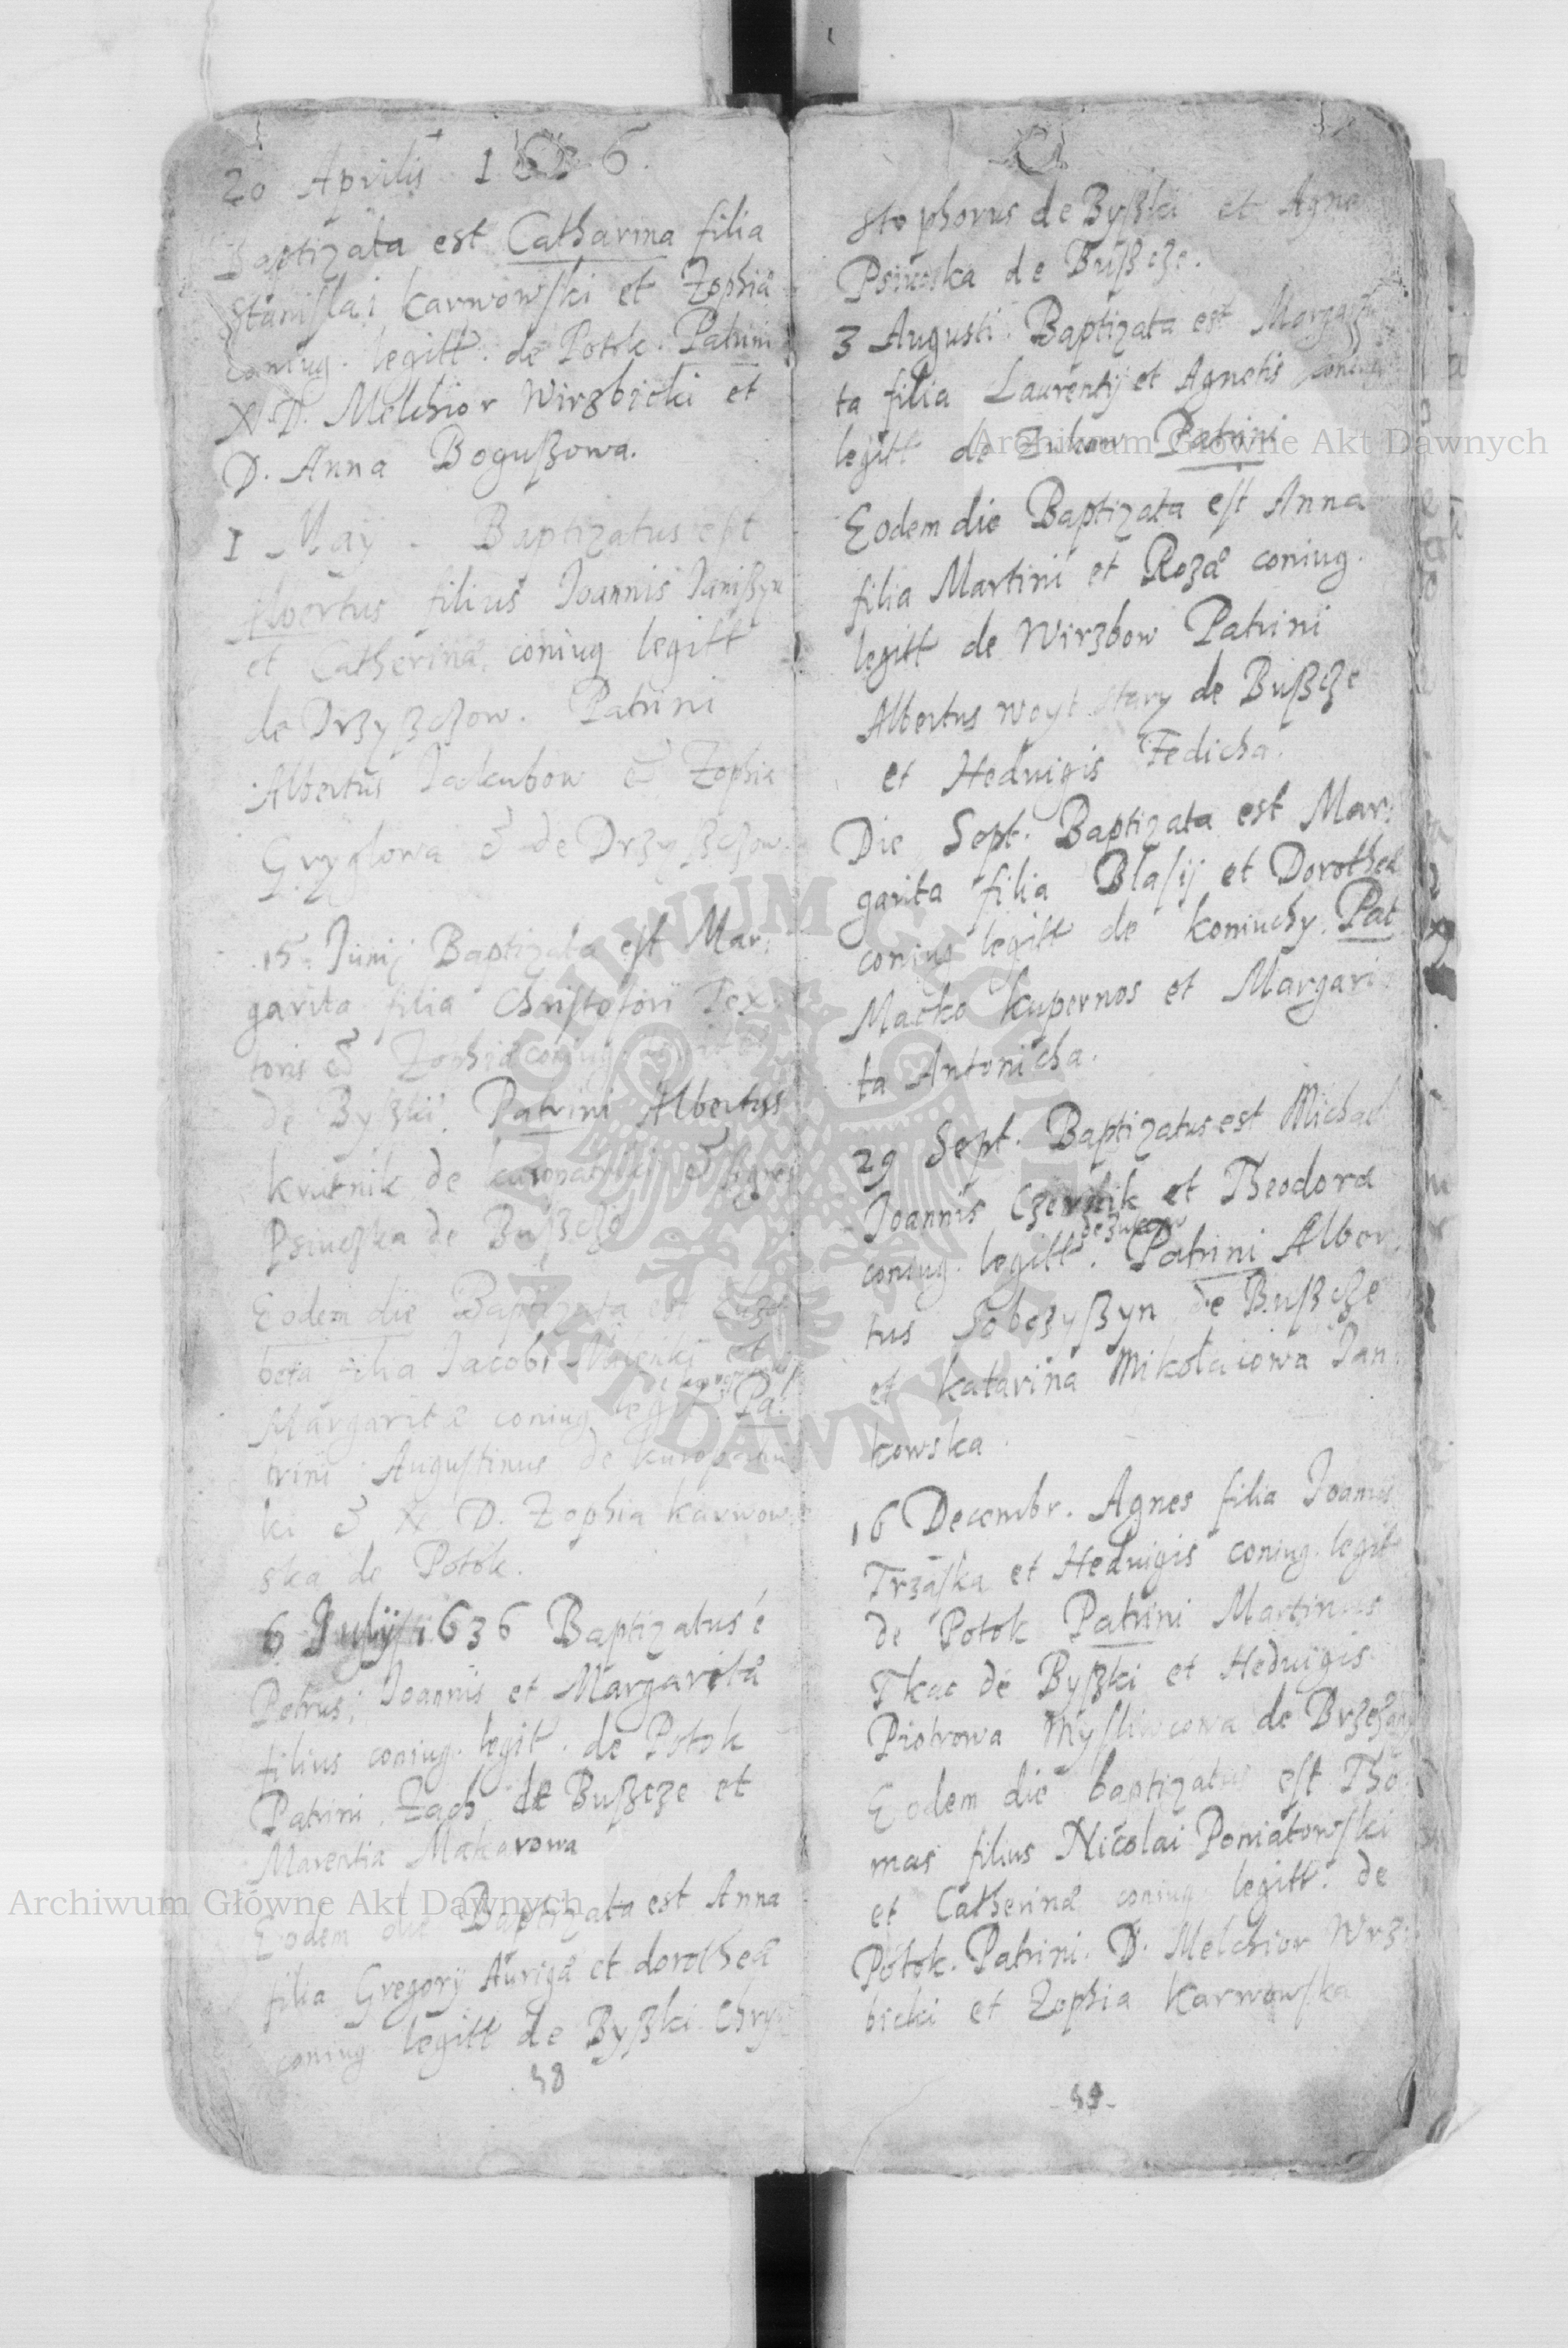 20 Aprilis 1636.
Baptizata est Catharina filia
Stanislai Karwowski et Zophiæ
coniug. legitt. de Potok. Patrini
N. D. Melchior Wirzbicki et
D. Anna Bogußowa.
1 Maÿ. Baptizatus est
Albertus filius Joannis Janißyn
et Catherinæ coniug legitt
de Drzyzczow. Patrini
Albertus Jackubow & Zophia
Gryglowa & de Drzyßczow.
15 Junij Baptizata est Mar:
garita filia Christofori Tex
toris & Zophiæ coniug.
de Byßki. Patrini Albertus
krutnik de & Agnes
Psiuczka de Bußcze
Eodem die Baptizata est Elza
beta filia Jacobi et
Margaritæ coniug legit. Pa:
trini Augustinus de kuropatni
ki & N. D. Zophia karwow
ska de Potok.
6 Julij 1636 Baptizatus é
Petrus, Joannis et Margaritæ
filius coniug. legit. de Potok
Patrini Zach de Bußcze et
Marentia Makarowa
Eodem die Baptizata est Anna
filia Gregorij Aurigæ et dorotheæ
coniug legitt de Byßki. Chry
38
stophorus de Byßki et Agne
Psiucska de Bußcze.
3 Augusti. Baptizata est Margari
ta filia Laurentij et Agnetis coniug
legitt de Zukow Patrini
Eodem die Baptizata est Anna
filia Martini et Rozæ coniug.
legitt de Wirzbow Patrini
Albertus woyt stary de Bußcze
et Hedvigis Fedicha.
Die Sept. Baptizata est Mar:
garita filia Blasij et Dorotheæ
coniug legitt de koniuchy. Pat
Macko kupernos et Margari
ta Antonicha.
29 Sept. Baptizatus est Michael
Joannis et Theodoræ
de Zukow
coniug. legitt. Patrini Alber
tus Sobczyßyn de Bußcze
et katarina Mikołaiowa Jan
kowska.
16 Decembr. Agnes filia Joannis
Trzaska et Heduigis coniug. legit
de Potok Patrini Martinus
Tkac de Byßki et Heduigis
Piotrowa Myśliwcowa de Brzezan
Eodem die baptizatus est Tho
mas filius Nicolai Poniatowski
et Catherinæ coniug legitt. de
Potok. Patrini. D. Melchior Wrz:
bicki et Zophia Karwowska
39
Archiwum Główne Akt Dawnych
Archiwum Główne Akt Dawnych
ARCHIWUM GŁÓWNE AKT DAWNYCH